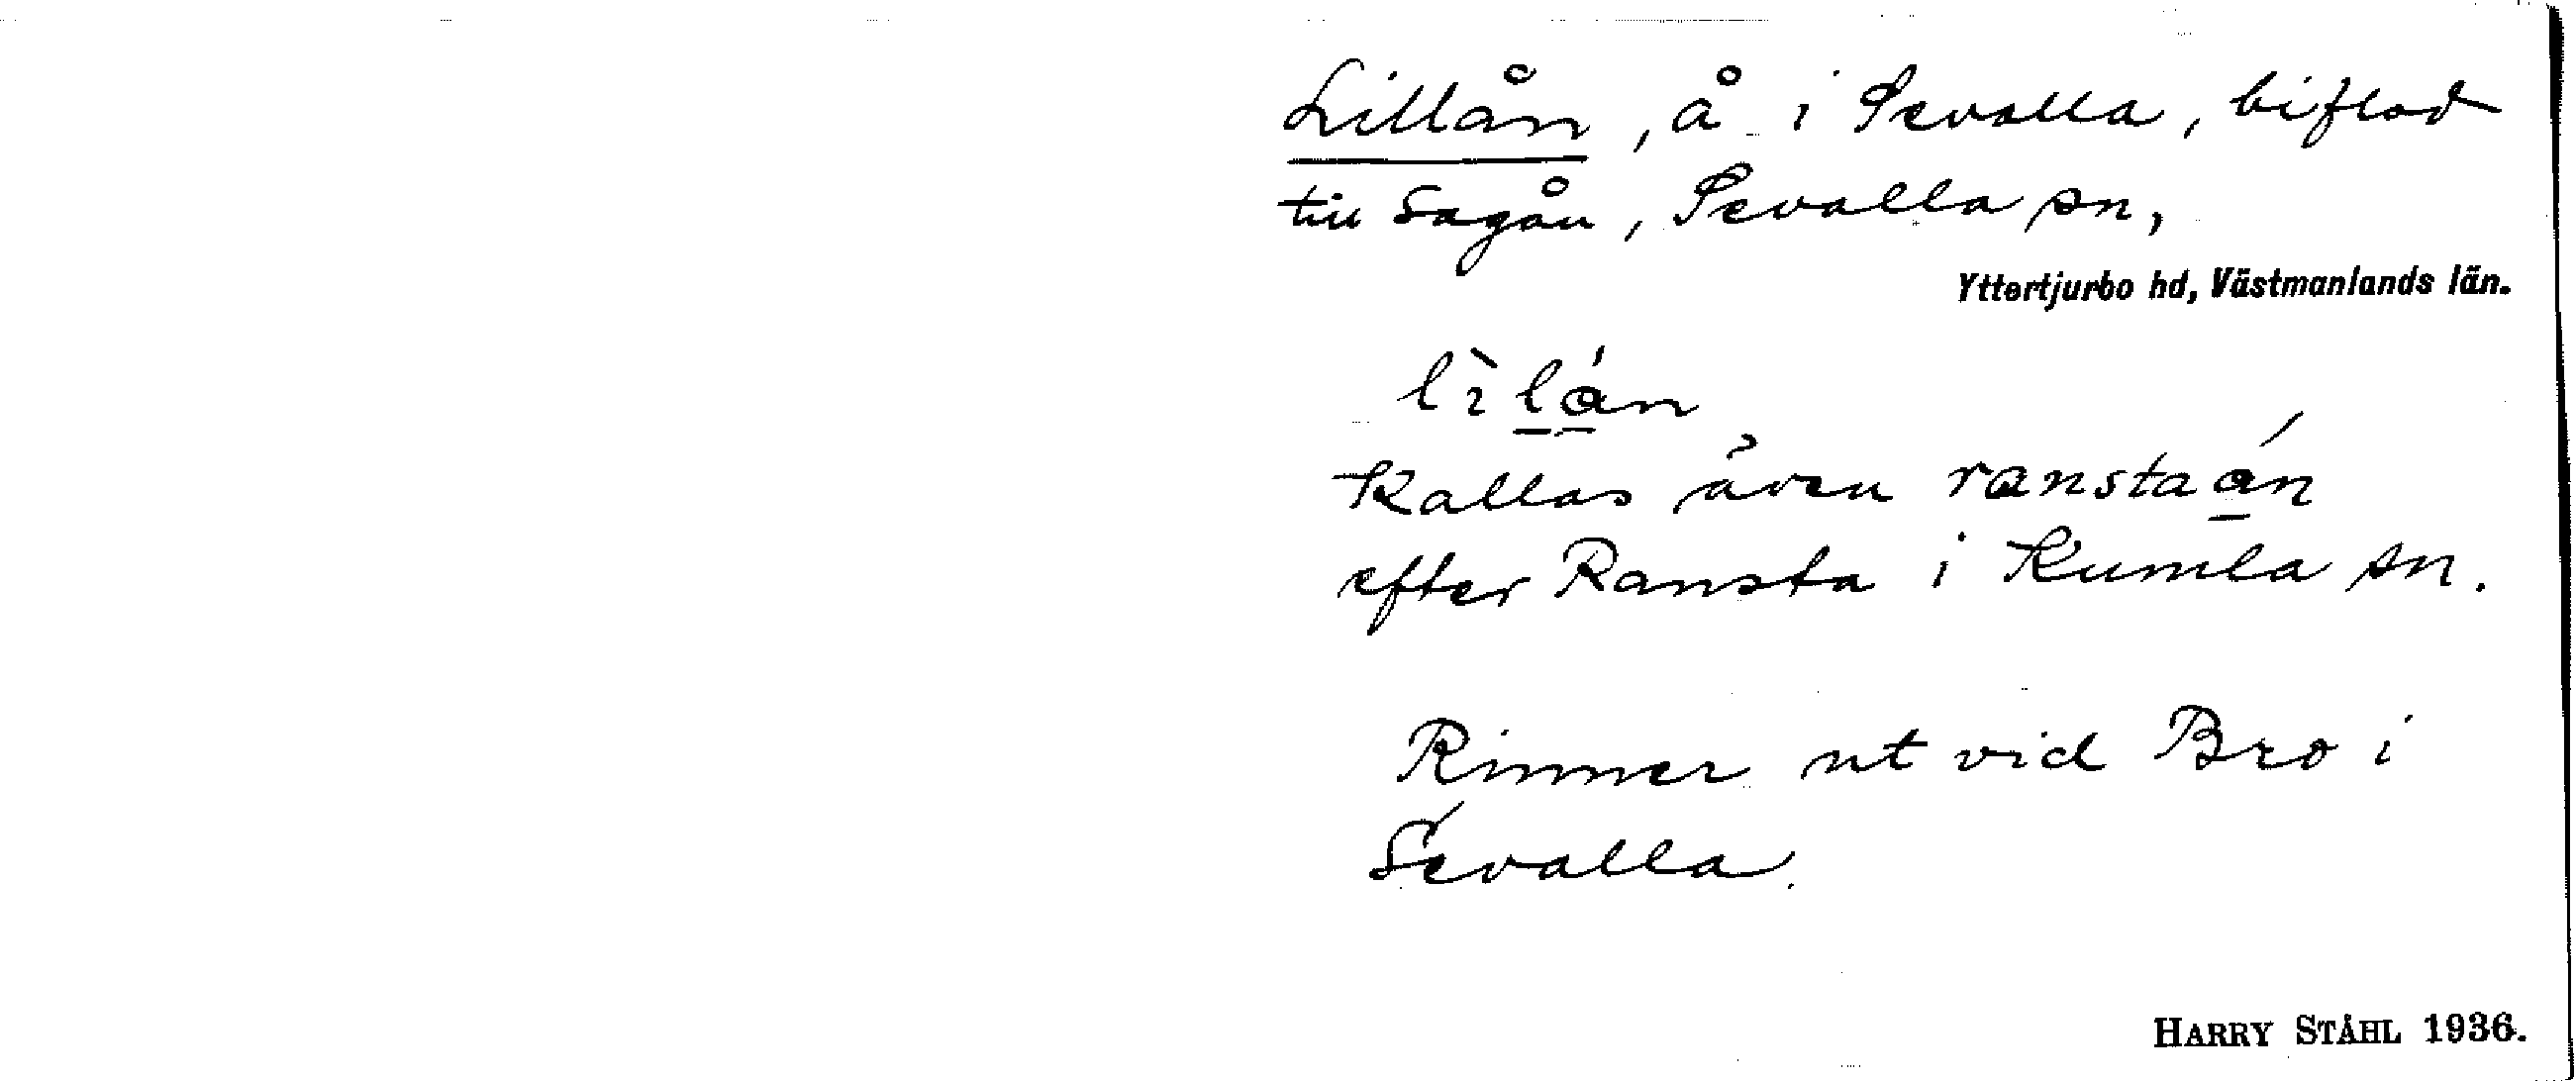 Lillån, å i Sevalla, biflod
till Sagån, Sevalla sn,
Yttertjurbo hd, Västmanlands län.
lìlán
Kallas även ranstaán
efter Ransta i Kumla sn.
Rinner ut vid Bro i
Sevalla.
HARRY STÅHL 1936.